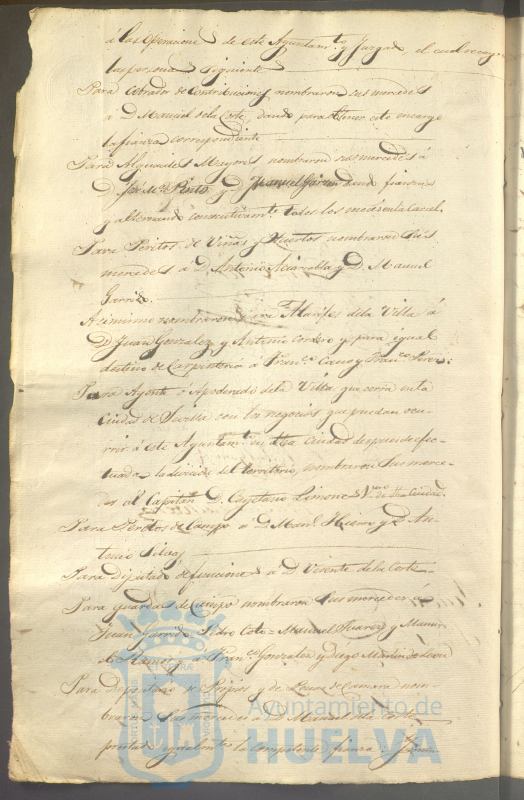 a las operaciones de este Ayuntamto. y Juzgado, el cual
las personas siguientes
Para Cobrador de Contribuciones nombraron sus mercedes
a D. Manuel de la Corte, dando para obtener este encargo
la fianza correspondiente
Para Alguaciles Mayores nombraron sus mercedes á
D. José Ma. Pinto y D. Manuel Garcia dando fianzas
y alternando consecutivamte. todos los meses en la Carcel.
Para Peritos de Viñas y Huertos nombraron sus
mercedes a D. Antonio y D. Manuel
Garrido.
Asimismo nombraron para Alarifes de la Villa á
D. Juan Gonzalez y Antonio Cordero y para igual
destino de Carpinteria á Franco. Cano y Franco. Perez.
Para Agente ó Apoderado de la Villa que corra en la
Ciudad de Sevilla con los negocios que puedan ocu-
rrir á este Ayuntamto. en dha Ciudad despues de efec-
tuada la division del territorio, nombraron sus merce-
des al Capitan D. Cayetano Limones Vno. de dha Ciudad.
Para Peritos de Campo a D. Manl. Hierro y D. An-
tonio
Para Diputado de funciones á D. Vicente de la Corte
Para guardas de Campo nombraron sus mercedes á
Juan Garrido Pedro Manuel Suarez y
Ramos Franco. Gonzalez y Diego Martin de Leon
Para Depositario de Propios y de Camara nom-
braron sus mercedes a D. Manuel de la Corte
la competente fianza
Ayuntamiento de
HUELVA